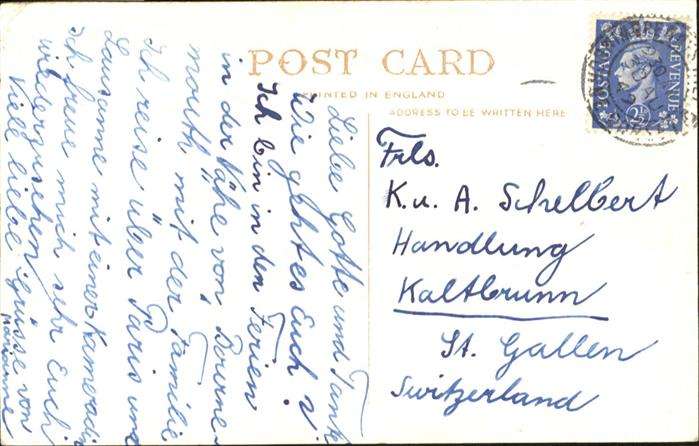 POST CARD
PRINTED IN ENGLAND
ADDRESS TO BE WRITTEN HERE
Liebe Gotte und Tante
Wie geht es Euch?
Ich bin in den Ferien
in der Nähe von Bourne-
mouth mit der Familie
Ich reise über Paris und
Lausanne mit einer Kameradin
Ich freue mich sehr Euch
wiederzusehen
Viel liebe Grüsse von
Frls.
K. u. A. Schelbert
Handlung
Kaltbrunn
St. Gallen
Switzerland
POSTAGE REVENUE
2½